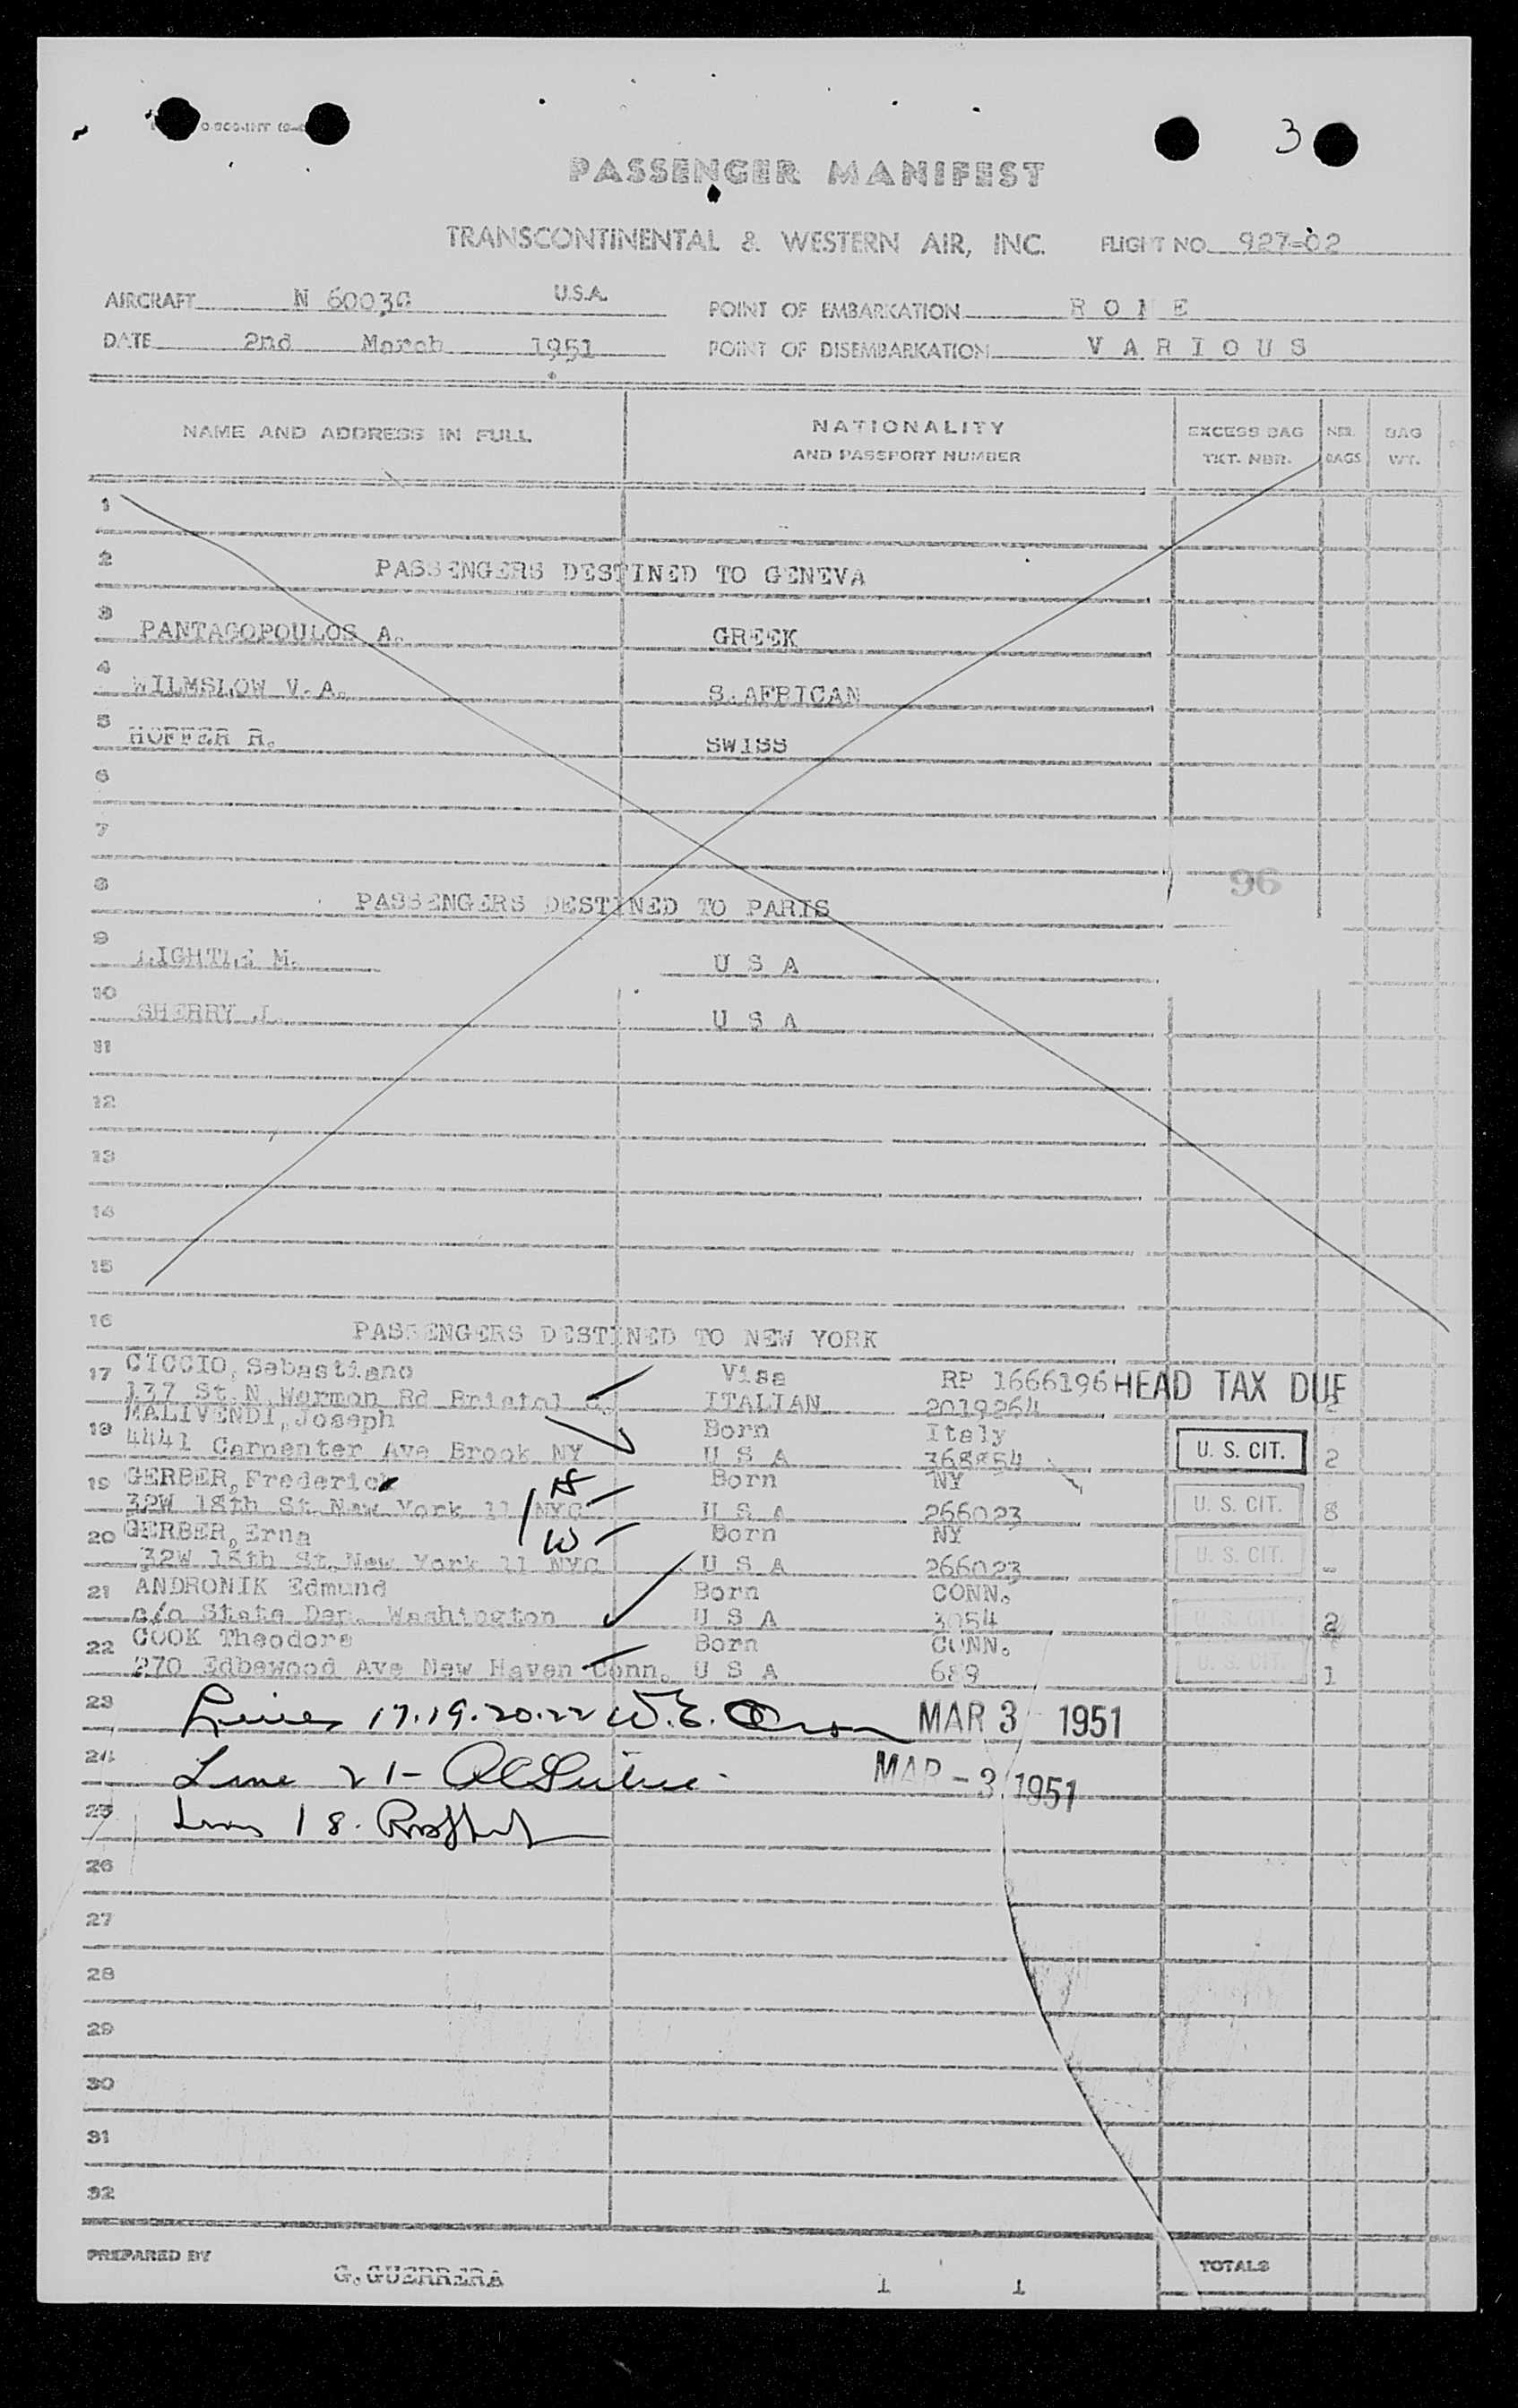 3
PASSENGER MANIFEST
TRANSCONTINENTAL & WESTERN AIR, INC. FLIGHT NO. 927-02
AIRCRAFT N 6003C U.S.A. POINT OF EMBARKATION R O M E
DATE 2nd March 1951 POINT OF DISEMBARKATION V A R I O U S
NAME AND ADDRESS IN FULL NATIONALITY AND PASSPORT NUMBER EXCESS BAG TKT. NBR. NBR. BAGS BAG WT.
1
2 PASSENGERS DESTINED TO GENEVA
3 PANTAGOPOULOS A. GREEK
4 WILMSLOW V.A. S.AFRICAN
5 HOFFER R. SWISS
6
7
8 PASSENGERS DESTINED TO PARIS
96
9 LIGHTLE M. U S A
10 SHERRY J. U S A
11
12
13
14
15
16 PASSENGERS DESTINED TO NEW YORK
17 CICCIO, Sebastiano Visa RP 1666196 HEAD TAX DUE
137 St. N Warmon Rd Bristol C. ITALIAN 2019264 2
18 MALIVENDI, Joseph Born Italy
4441 Carpenter Ave Brook NY U S A 368854 U. S. CIT. 2
19 GERBER, Frederick Born NY
32W 18th St. New York 11 NYC U S A 266023 U. S. CIT. 8
20 GERBER, Erna W Born NY
32W 18th St. New York 11 NYC U S A 266023 U. S. CIT. -
21 ANDRONIK Edmund Born CONN.
c/o State Dep. Washington U S A 3054 U. S. CIT. 2
22 COOK Theodore Born CONN.
270 Edbewood Ave New Haven Conn. U S A 689 U. S. CIT. 1
23 Lines 17.19.20.22 W.E. MAR 3 1951
24 Line 21- MAR -3 1951
25 Line 18.
26
27
28
29
30
31
32
PREPARED BY G.GUERRERA 1 1 TOTALS